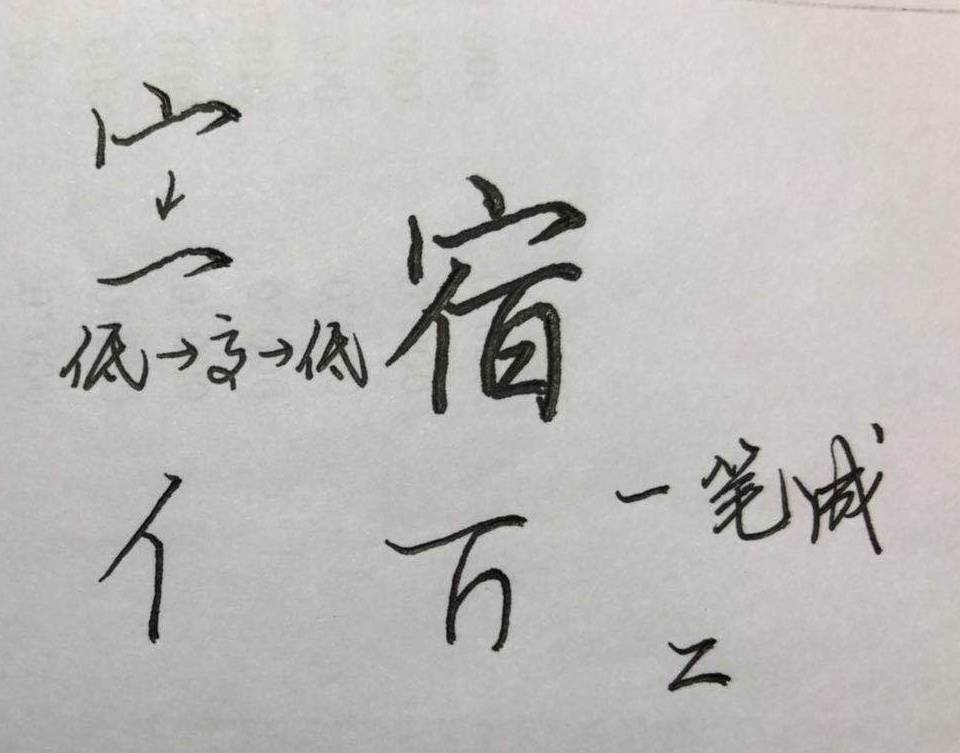 宀
↓
宿
低→高→低
亻
一笔成